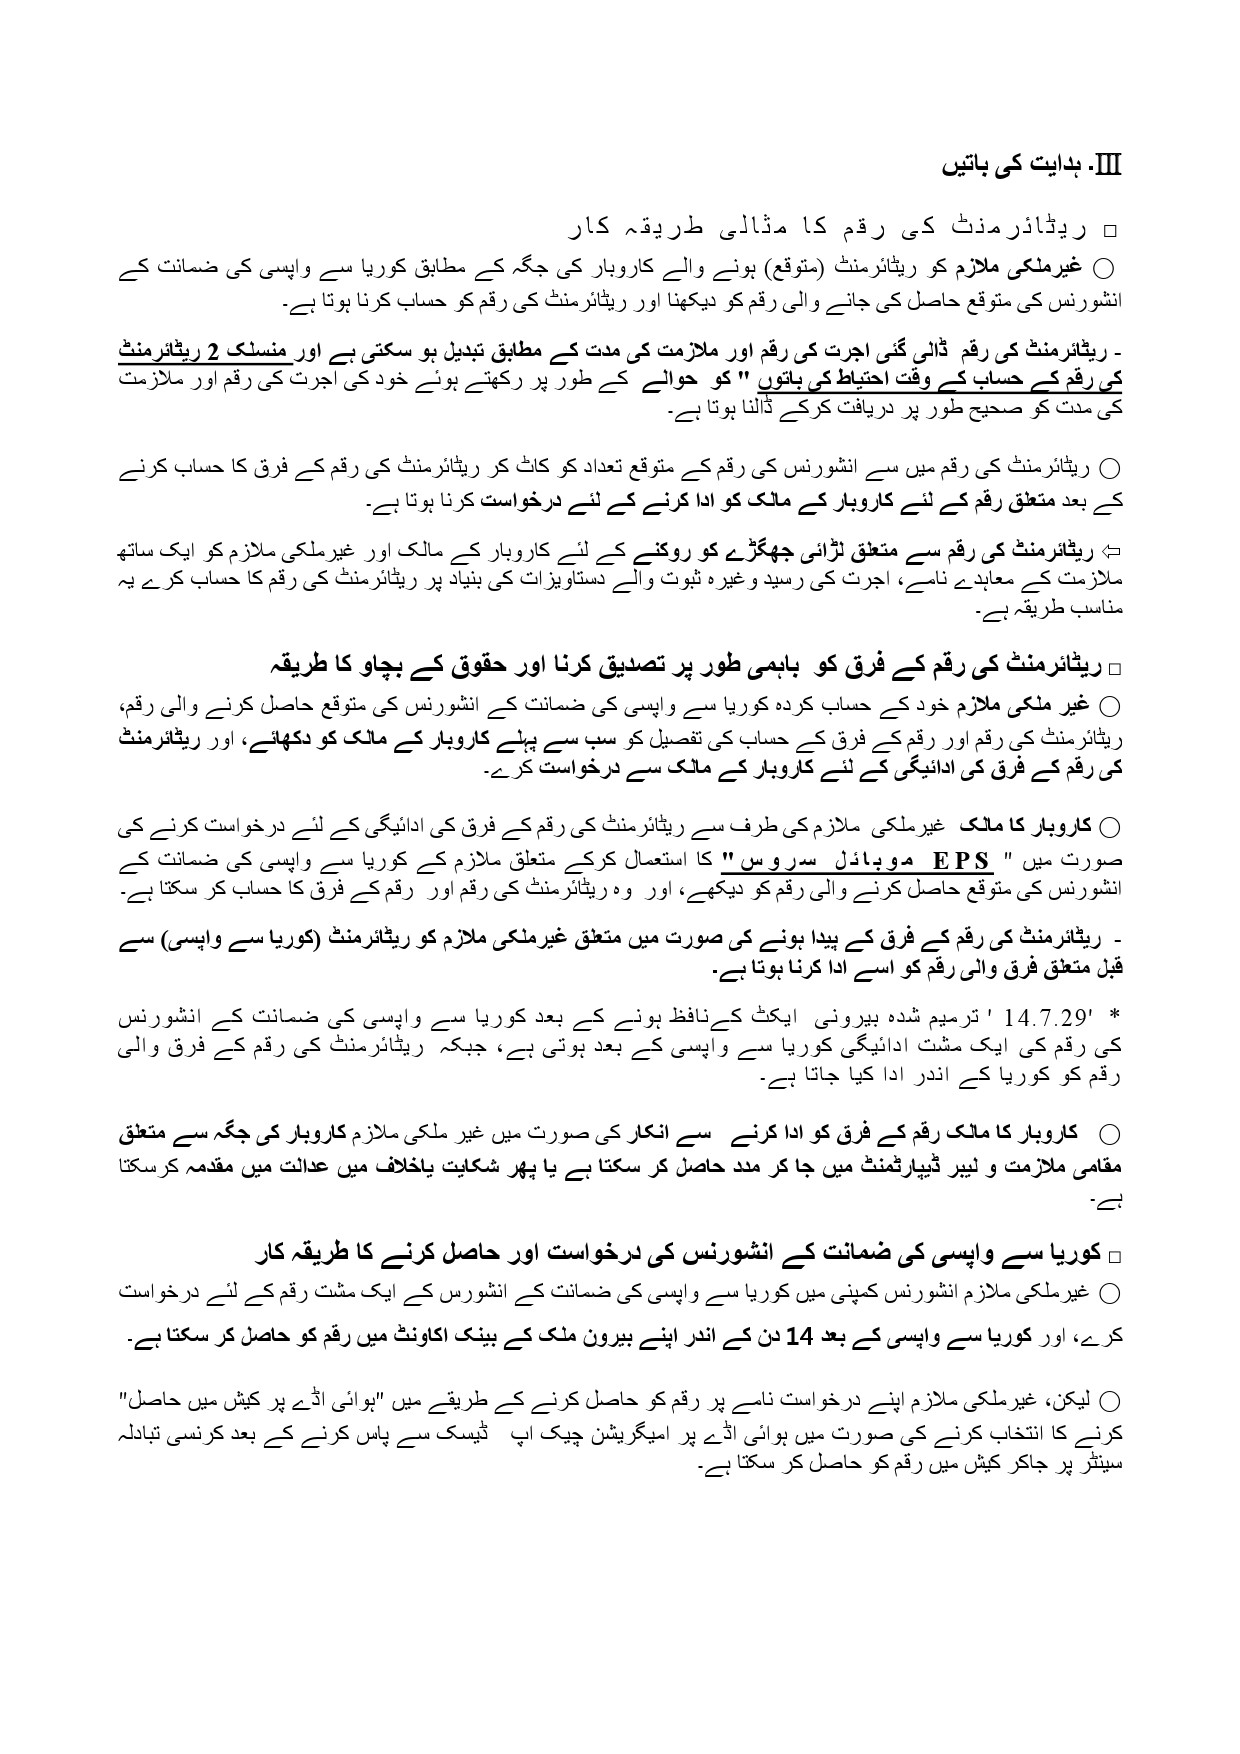 Ⅲ. ہدایت کی باتیں
□ ریٹائرمنٹ کی رقم کا مثالی طریقہ کار
○ غیرملکی ملازم کو ریٹائرمنٹ (متوقع) ہونے والے کاروبار کی جگہ کے مطابق کوریا سے واپسی کی ضمانت کے
انشورنس کی متوقع حاصل کی جانے والی رقم کو دیکھنا اور ریٹائرمنٹ کی رقم کو حساب کرنا ہوتا ہے۔
- ریٹائرمنٹ کی رقم ڈالی گئی اجرت کی رقم اور ملازمت کی مدت کے مطابق تبدیل ہو سکتی ہے اور منسلک 2 ریٹائرمنٹ
کی رقم کے حساب کے وقت احتیاط کی باتوں " کو حوالے کے طور پر رکھتے ہوئے خود کی اجرت کی رقم اور ملازمت
کی مدت کو صحیح طور پر دریافت کرکے ڈالنا ہوتا ہے۔
○ ریٹائرمنٹ کی رقم میں سے انشورنس کی رقم کے متوقع تعداد کو کاٹ کر ریٹائرمنٹ کی رقم کے فرق کا حساب کرنے
کے بعد متعلق رقم کے لئے کاروبار کے مالک کو ادا کرنے کے لئے درخواست کرنا ہوتا ہے۔
⇦ ریٹائرمنٹ کی رقم سے متعلق لڑائی جھگڑے کو روکنے کے لئے کاروبار کے مالک اور غیرملکی ملازم کو ایک ساتھ
ملازمت کے معاہدے نامے، اجرت کی رسید وغیرہ ثبوت والے دستاویزات کی بنیاد پر ریٹائرمنٹ کی رقم کا حساب کرے یہ
مناسب طریقہ ہے۔
□ ریٹائرمنٹ کی رقم کے فرق کو باہمی طور پر تصدیق کرنا اور حقوق کے بچاو کا طریقہ
○ غیر ملکی ملازم خود کے حساب کردہ کوریا سے واپسی کی ضمانت کے انشورنس کی متوقع حاصل کرنے والی رقم،
ریٹائرمنٹ کی رقم اور رقم کے فرق کے حساب کی تفصیل کو سب سے پہلے کاروبار کے مالک کو دکھائے، اور ریٹائرمنٹ
کی رقم کے فرق کی ادائیگی کے لئے کاروبار کے مالک سے درخواست کرے۔
○ کاروبار کا مالک غیرملکی ملازم کی طرف سے ریٹائرمنٹ کی رقم کے فرق کی ادائیگی کے لئے درخواست کرنے کی
صورت میں " EPS موبائل سروس" کا استعمال کرکے متعلق ملازم کے کوریا سے واپسی کی ضمانت کے
انشورنس کی متوقع حاصل کرنے والی رقم کو دیکھے، اور وہ ریٹائرمنٹ کی رقم اور رقم کے فرق کا حساب کر سکتا ہے۔
- ریٹائرمنٹ کی رقم کے فرق کے پیدا ہونے کی صورت میں متعلق غیرملکی ملازم کو ریٹائرمنٹ (کوریا سے واپسی) سے
قبل متعلق فرق والی رقم کو اسے ادا کرنا ہوتا ہے۔
* '14.7.29 ' ترمیم شدہ بیرونی ایکٹ کےنافظ ہونے کے بعد کوریا سے واپسی کی ضمانت کے انشورنس
کی رقم کی ایک مشت ادائیگی کوریا سے واپسی کے بعد ہوتی ہے، جبکہ ریٹائرمنٹ کی رقم کے فرق والی
رقم کو کوریا کے اندر ادا کیا جاتا ہے۔
○ کاروبار کا مالک رقم کے فرق کو ادا کرنے سے انکار کی صورت میں غیر ملکی ملازم کاروبار کی جگہ سے متعلق
مقامی ملازمت و لیبر ڈیپارٹمنٹ میں جا کر مدد حاصل کر سکتا ہے یا پھر شکایت یاخلاف میں عدالت میں مقدمہ کرسکتا
ہے۔
□ کوریا سے واپسی کی ضمانت کے انشورنس کی درخواست اور حاصل کرنے کا طریقہ کار
○ غیرملکی ملازم انشورنس کمپنی میں کوریا سے واپسی کی ضمانت کے انشورس کے ایک مشت رقم کے لئے درخواست
کرے، اور کوریا سے واپسی کے بعد 14 دن کے اندر اپنے بیرون ملک کے بینک اکاونٹ میں رقم کو حاصل کر سکتا ہے۔
○ لیکن، غیرملکی ملازم اپنے درخواست نامے پر رقم کو حاصل کرنے کے طریقے میں "ہوائی اڈے پر کیش میں حاصل"
کرنے کا انتخاب کرنے کی صورت میں ہوائی اڈے پر امیگریشن چیک اپ ڈیسک سے پاس کرنے کے بعد کرنسی تبادلہ
سینٹر پر جاکر کیش میں رقم کو حاصل کر سکتا ہے۔